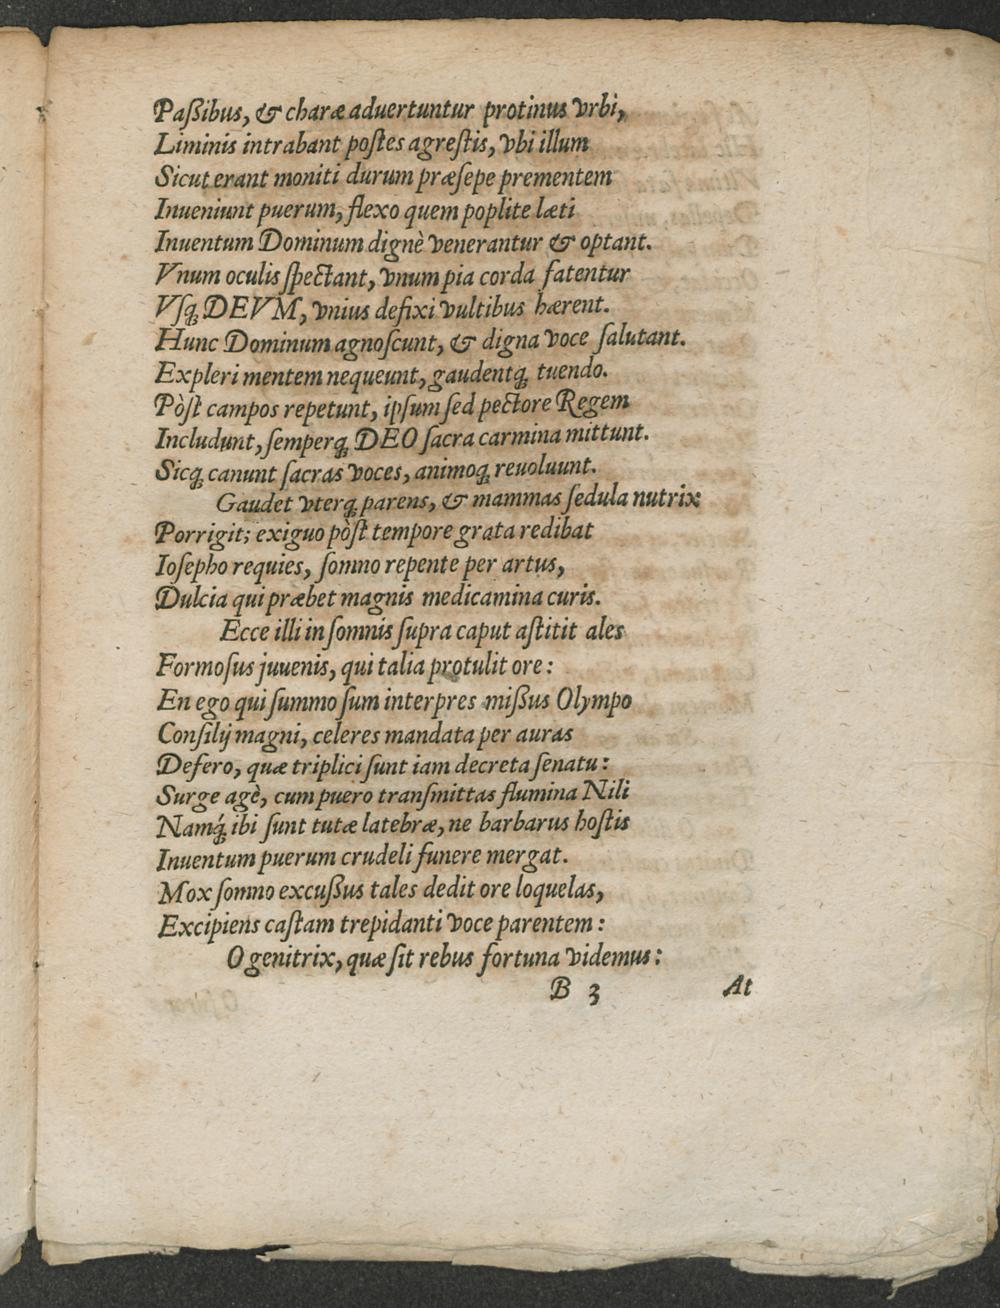 Paßibus, & charæ aduertuntur protinus vrbi,
Liminis intrabant poſtes agreſtis, vbi illum
Sicut erant moniti durum præſepe prementem
Inueniunt puerum, flexo quem poplite læti
Inuentum Dominum dignè venerantur & optant.
Vnum oculis ſpectant, vnum pia corda fatentur
Vſq; DEVM, vnius defixi vultibus hærent.
Hunc Dominum agnoſcunt, & digna voce ſalutant.
Expleri mentem nequeunt, gaudentq; tuendo.
Pòſt campos repetunt, ipſum ſed pectore Regem
Includunt, ſemperq; DEO ſacra carmina mittunt.
Sicq; canunt ſacras voces, animoq; reuoluunt.
Gaudet vterq; parens, & mammas ſedula nutrix
Porrigit; exiguo pòſt tempore grata redibat
Ioſepho requies, ſomno repente per artus,
Dulcia qui præbet magnis medicamina curis.
Ecce illi in ſomnis ſupra caput aſtitit ales
Formoſus juuenis, qui talia protulit ore:
En ego qui ſummo ſum interpres mißus Olympo
Conſilij magni, celeres mandata per auras
Defero, quæ triplici ſunt iam decreta ſenatu:
Surge agè, cum puero tranſmittas flumina Nili
Namq́; ibi ſunt tutæ latebræ, ne barbarus hoſtis
Inuentum puerum crudeli funere mergat.
Mox ſomno excußus tales dedit ore loquelas,
Excipiens caſtam trepidanti voce parentem:
O genitrix, quæ ſit rebus fortuna videmus:
B 3 At